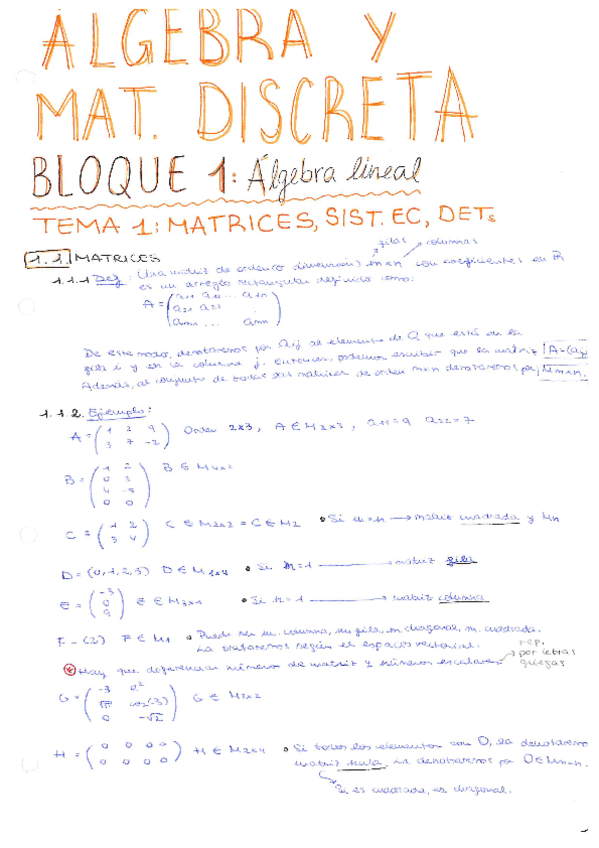 ÁLGEBRA Y
MAT. DISCRETA
BLOQUE 1: Álgebra lineal
TEMA 1: MATRICES, SIST. EC, DETs
filas columnas
1.1. MATRICES
1.1.1 Def: Una matriz de orden (o dimensión) m×n con coeficientes en R
es un arreglo rectangular definido como:
A = ( a11 a12 ... a1n
a21 a22
am1 .... amn )
De este modo, denotaremos por aij al elemento de A que está en la
fila i y en la columna j. Entonces, podemos escribir que la matriz A=(aij
Además, al conjunto de todas las matrices de orden m×n denotaremos por Mm×n.
1.1.2. Ejemplo:
A = ( 1 2 9
3 7 -2 ) Orden 2x3, A ∈ M2x3, a22=7
B = ( 1 2
0 3
4 -5
0 0 ) B ∈ M4x2
C = ( 1 2
3 4 ) C ∈ M2x2 = C ∈ M2 • Si m=n → matriz cuadrada y Mn
D = (0, 1, 2, 3) D ∈ M1x4 • Si m=1 → matriz fila
E = ( -3
0
9 ) E ∈ M3x1 • Si n=1 → matriz columna
F = (2) F ∈ M1 • Puede ser m. columna, m. fila, m. diagonal, m. cuadrada.
La trataremos según el espacio vectorial.
rep.
* Hay que diferenciar números de matriz y números escalares → por letras
griegas
G = ( -3 e²
cos(3)
0 -√2 ) G ∈ M3x2
H = ( 0 0 0 0
0 0 0 0 ) H ∈ M2x4 • Si todos los elementos son 0, la denotaremos
matriz nula. La denotaremos por O ∈ Mm×n.
Si es cuadrada, es diagonal.